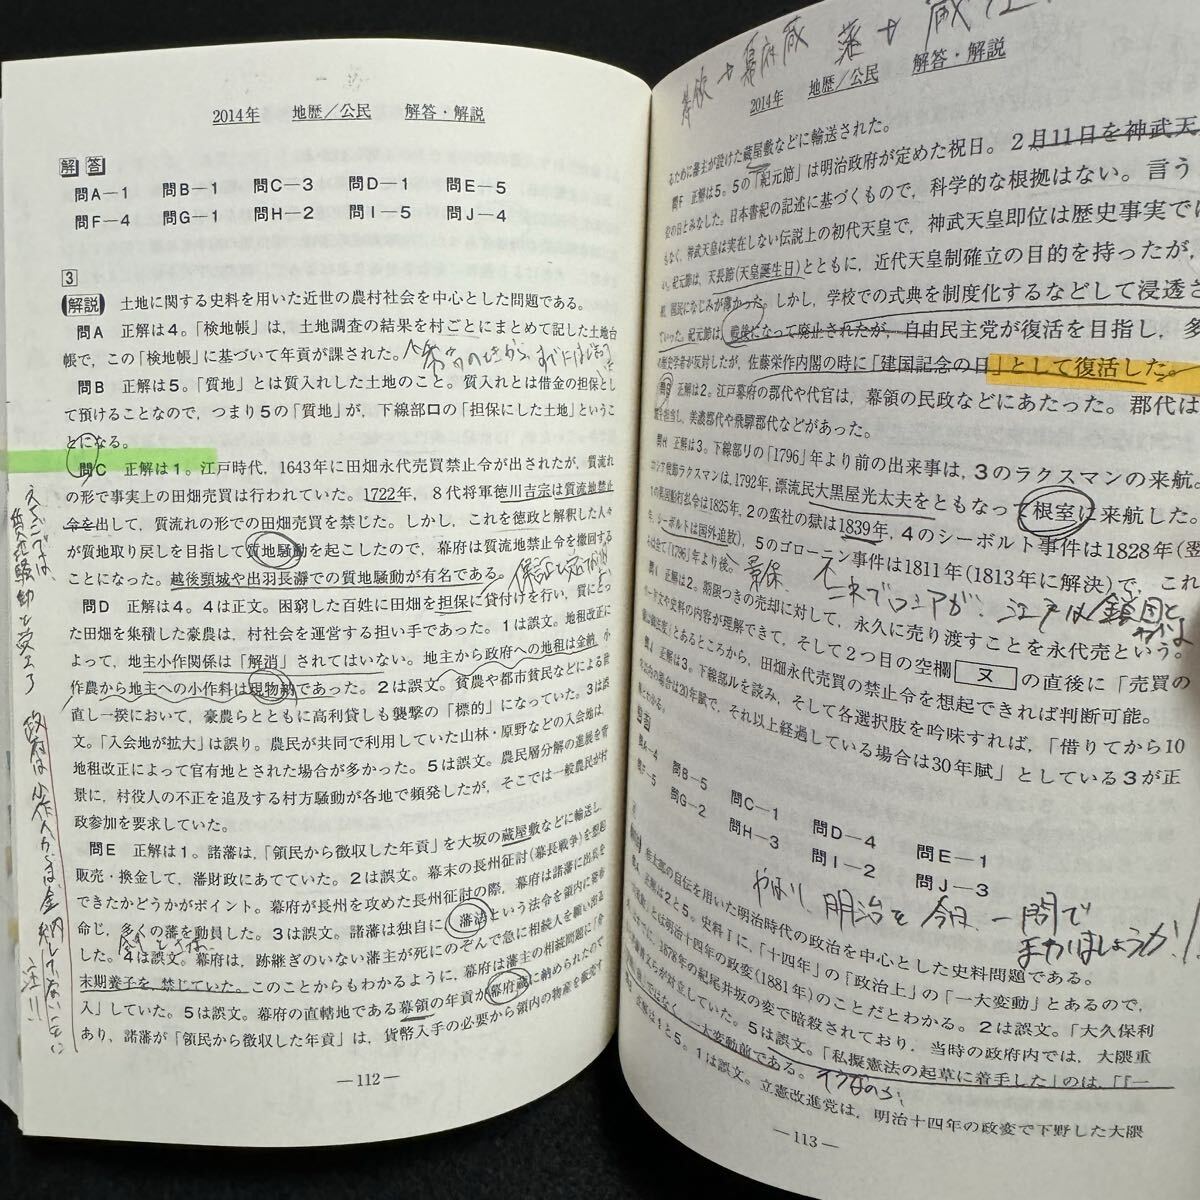 2014年　地歴／公民　解答・解説
解答
問A－1　問B－1　問C－3　問D－1　問E－5
問F－4　問G－1　問H－2　問I－5　問J－4
3
解説　土地に関する史料を用いた近世の農村社会を中心とした問題である。
問A　正解は4。「検地帳」は，土地調査の結果を村ごとにまとめて記した土地台
帳で，この「検地帳」に基づいて年貢が課された。
問B　正解は5。「質地」とは質入れした土地のこと。質入れとは借金の担保とし
て預けることなので，つまり5の「質地」が，下線部ロの「担保にした土地」というこ
とになる。
問C　正解は1。江戸時代，1643年に田畑永代売買禁止令が出されたが，質流れ
の形で事実上の田畑売買は行われていた。1722年，8代将軍徳川吉宗は質流地禁止
令を出して，質流れの形での田畑売買を禁じた。しかし，これを徳政と解釈した人々
が質地取り戻しを目指して質地騒動を起こしたので，幕府は質流地禁止令を撤回する
ことになった。越後頸城や出羽長瀞での質地騒動が有名である。
問D　正解は4。4は正文。困窮した百姓に田畑を担保に貸付けを行い，質にとっ
た田畑を集積した豪農は，村社会を運営する担い手であった。1は誤文。地租改正に
よって，地主小作関係は「解消」されてはいない。地主から政府への地租は金納，小
作農から地主への小作料は現物納であった。2は誤文。貧農や都市貧民などによる世
直し一揆において，豪農らとともに高利貸しも襲撃の「標的」になっていた。3は誤
文。「入会地が拡大」は誤り。農民が共同で利用していた山林・原野などの入会地は，
地租改正によって官有地とされた場合が多かった。5は誤文。農民層分解の進展を背
景に，村役人の不正を追及する村方騒動が各地で頻発したが，そこでは一般農民が村
政参加を要求していた。
問E　正解は1。諸藩は，「領民から徴収した年貢」を大坂の蔵屋敷などに輸送し，
販売・換金して，藩財政にあてていた。2は誤文。幕末の長州征討（幕長戦争）を想起
できたかどうかがポイント。幕府が長州を攻めた長州征討の際，幕府は諸藩に出兵を
命じ，多くの藩を動員した。3は誤文。諸藩は独自に「藩法」という法令を領内に発布
した。4は誤文。幕府は，跡継ぎのいない藩主が死にのぞんで急に相続人を願い出る
末期養子を，禁じていた。このことからもわかるように，幕府は藩主の相続問題に「介
入」していた。5は誤文。幕府の直轄地である幕領の年貢が幕府蔵に納められたので
あり，諸藩が「領民から徴収した年貢」は，貨幣入手の必要から領内の物産を販売す
―112―
2014年　地歴／公民　解答・解説
るために藩主が設けた蔵屋敷などに輸送された。
問F　正解は5。5の「紀元節」は明治政府が定めた祝日。2月11日を神武天
位の日とみなした。日本書紀の記述に基づくもので，科学的な根拠はない。言う
もなく，神武天皇は実在しない伝説上の初代天皇で，神武天皇即位は歴史事実では
紀元節は，天長節（天皇誕生日）とともに，近代天皇制確立の目的を持ったが，
国民になじみが薄かった。しかし，学校での式典を制度化するなどして浸透さ
ていった。紀元節は，戦後になって廃止されたが，自由民主党が復活を目指し，多
の歴史学者が反対したが，佐藤栄作内閣の時に「建国記念の日」として復活した。
問G　正解は2。江戸幕府の郡代や代官は，幕領の民政などにあたった。郡代は
を担当し，美濃郡代や飛騨郡代などがあった。
問H　正解は3。下線部リの「1796」年より前の出来事は，3のラクスマンの来航。
ロシア使節ラクスマンは，1792年，漂流民大黒屋光太夫をともなって根室に来航した。
1の異国船打払令は1825年，2の蛮社の獄は1839年，4のシーボルト事件は1828年（翌
年，シーボルトは国外追放），5のゴローウン事件は1811年（1813年に解決）で，これ
らは全て「1796」年より後。
問I　正解は2。期限つきの売却に対して，永久に売り渡すことを永代売という。
文や史料の内容が理解できて，そして2つ目の空欄 ヌ の直後に「売買の
とあるところから，田畑永代売買の禁止令を想起できれば判断可能。
問J　正解は3。下線部ルを読み，そして各選択肢を吟味すれば，「借りてから10
の場合は20年賦で，それ以上経過している場合は30年賦」としている3が正
解とわかる。
解答
問A－4　問B－5　問C－1　問D－4　問E－1
問F－5　問G－2　問H－3　問I－2　問J－3
やはり、明治を今日、一問で
の自伝を用いた明治時代の政治を中心とした史料問題である。
正解は2と5。史料Iに，「十四年」の「政治上」の「一大変動」とあるので，
とは明治十四年の政変（1881年）のことだとわかる。2は誤文。「大久保利
1878年の紀尾井坂の変で暗殺されており，当時の政府内では，大隈重
らが対立していた。5は誤文。「私擬憲法の起草に着手した」のは，「「一
ではなく，一大変動前である。
正解は1と5。1は誤文。立憲改進党は，明治十四年の政変で下野した大隈
―113―